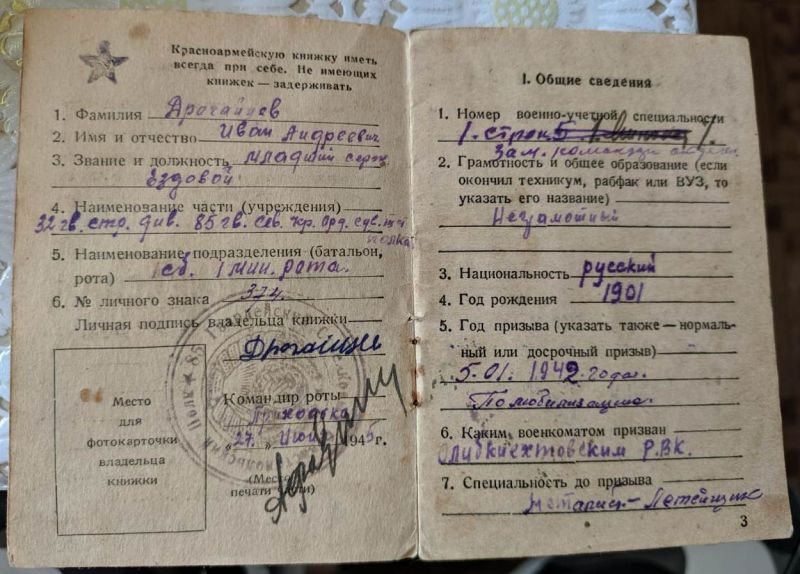 Красноармейскую книжку иметь
всегда при себе. Не имеющих
книжек — задерживать
1. Фамилия
2. Имя и отчество Иван Андреевич
3. Звание и должность младший серж
Ездовой
4. Наименование части (учреждения)
32 гв. стр. див. 85 гв. сев. кр. орд. сув.
полка
5. Наименование подразделения (батальон,
рота) 1 сб. 1 мин. рота.
6. № личного знака 374.
Личная подпись владельца книжки
Место
для
фотокарточки
владельца
книжки
Командир роты
Приходько
„27„ Июня 1945 г.
(Место
печати части)
I. Общие сведения
1. Номер военно-учетной специальности
1. строц 5
Зам. команди
2. Грамотность и общее образование (если
окончил техникум, рабфак или ВУЗ, то
указать его название)
Неграмотный
3. Национальность русский
4. Год рождения 1901
5. Год призыва (указать также — нормаль-
ный или досрочный призыв)
5.01. 1942 года.
По мобилизации.
6. Каким военкоматом призван
Р.В.К.
7. Специальность до призыва
Литейщик
3